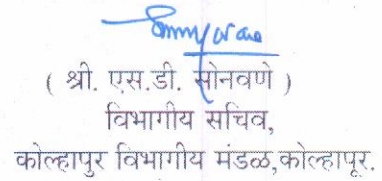 ( श्री. एस.डी. सोनवणे )
विभागीय सचिव,
कोल्हापुर विभागीय मंडळ,कोल्हापूर.